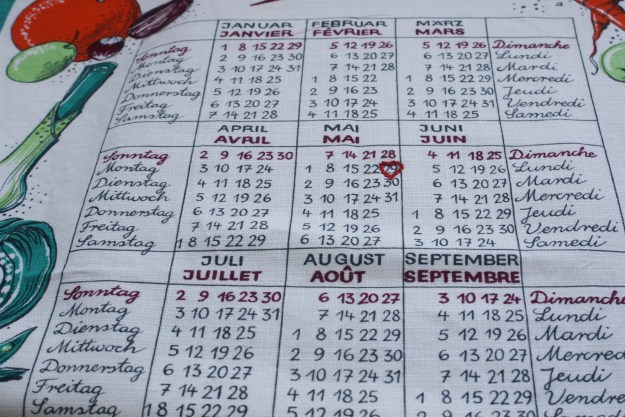 JANUAR FEBRUAR MÄRZ
JANVIER FÉVRIER MARS
Sonntag 1 8 15 22 29 5 12 19 26 5 12 19 26 Dimanche
Montag 2 9 16 23 30 6 13 20 27 6 13 20 27 Lundi
Dienstag 3 10 17 24 31 7 14 21 28 7 14 21 28 Mardi
Mittwoch 4 11 18 25 1 8 15 22 1 8 15 22 29 Mercredi
Donnerstag 5 12 19 26 2 9 16 23 2 9 16 23 30 Jeudi
Freitag 6 13 20 27 3 10 17 24 3 10 17 24 31 Vendredi
Samstag 7 14 21 28 4 11 18 25 4 11 18 25 Samedi
APRIL MAI JUNI
AVRIL MAI JUIN
Sonntag 2 9 16 23 30 7 14 21 28 4 11 18 25 Dimanche
Montag 3 10 17 24 1 8 15 22 29 5 12 19 26 Lundi
Dienstag 4 11 18 25 2 9 16 23 30 6 13 20 27 Mardi
Mittwoch 5 12 19 26 3 10 17 24 31 7 14 21 28 Mercredi
Donnerstag 6 13 20 27 4 11 18 25 1 8 15 22 29 Jeudi
Freitag 7 14 21 28 5 12 19 26 2 9 16 23 30 Vendredi
Samstag 1 8 15 22 29 6 13 20 27 3 10 17 24 Samedi
JULI AUGUST SEPTEMBER
JUILLET AOÛT SEPTEMBRE
Sonntag 2 9 16 23 30 6 13 20 27 3 10 17 24 Dimanche
Montag 3 10 17 24 31 7 14 21 28 4 11 18 25 Lundi
Dienstag 4 11 18 25 1 8 15 22 29 5 12 19 26 Mardi
Mittwoch 5 12 19 26 2 9 16 23 30 6 13 20 27 Mercred
Donnerstag 6 13 20 27 3 10 17 24 31 7 14 21 28 Jeudi
Freitag 7 14 21 28 4 11 18 25 1 8 15 22 29 Vendred
Samstag 1 8 15 22 29 5 12 19 26